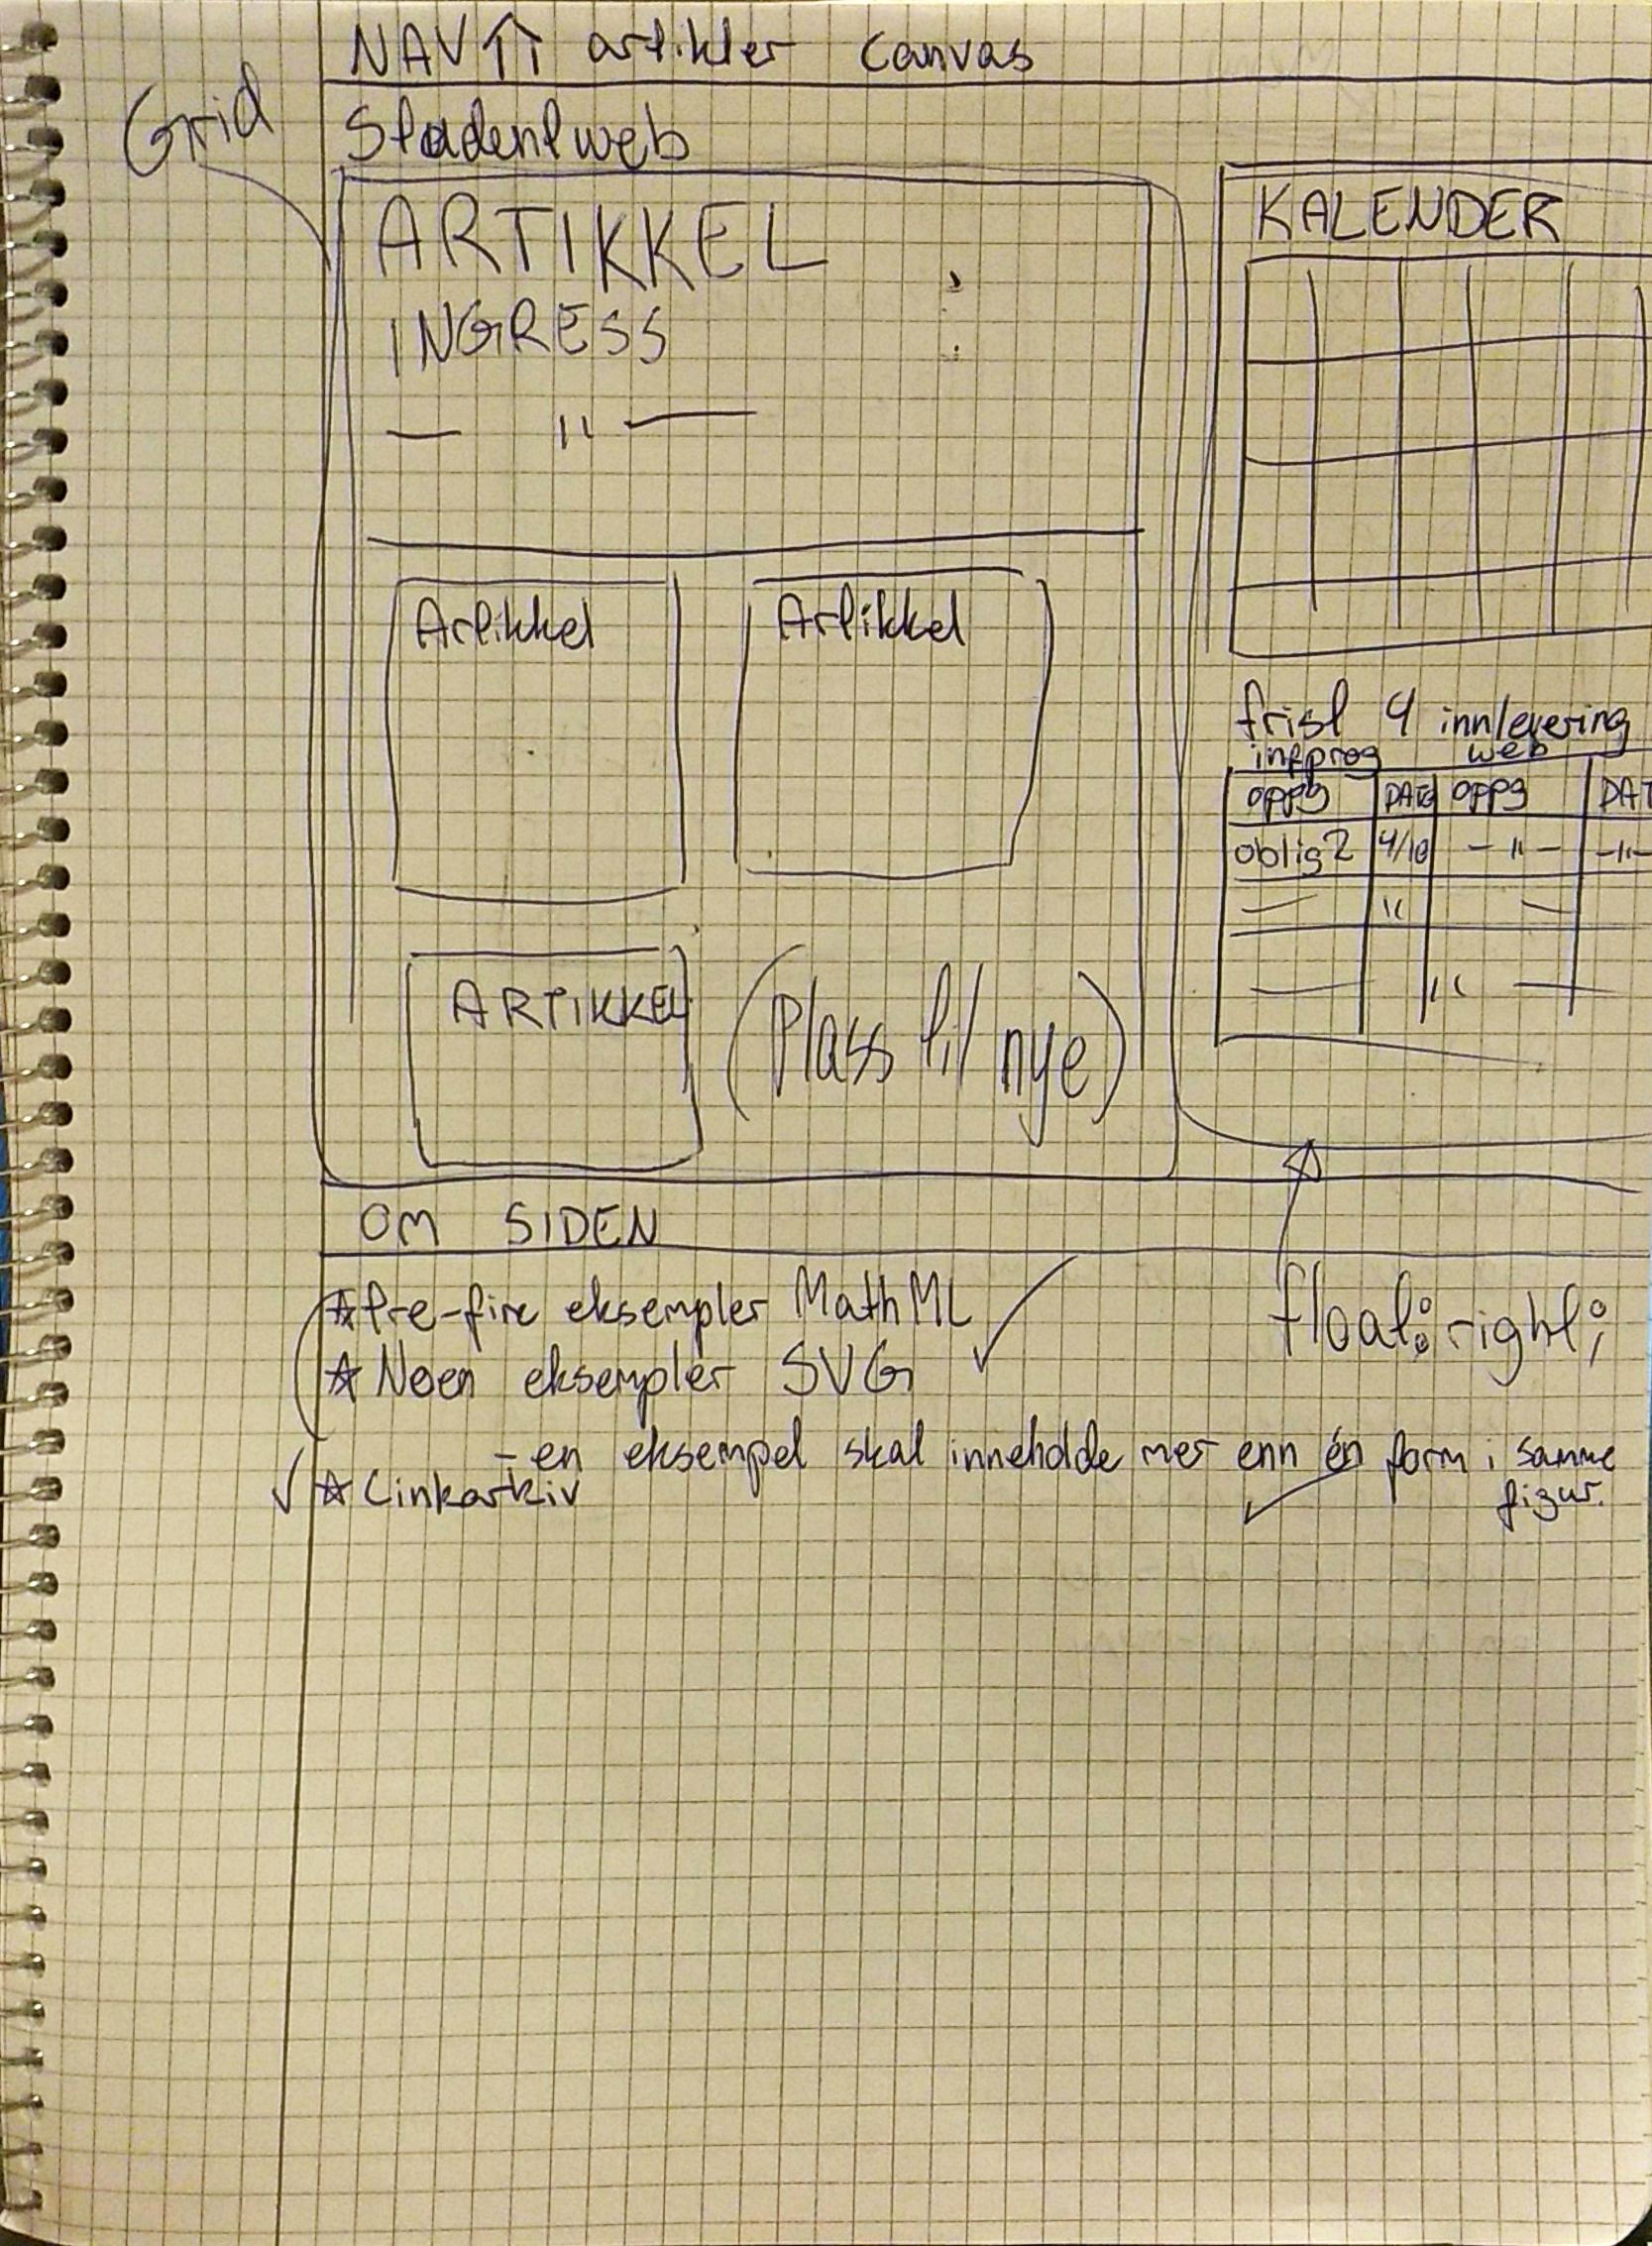 NAV ⇈ artikler canvas
Grid
Studentweb
ARTIKKEL
INGRESS
— " —
Artikkel
Artikkel
ARTIKKEL
(Plass til nye)
KALENDER
frist 4 innlevering
infprog web
oppg DATO oppg DAT
oblig2 4/10 – " – – " –
— " —
— " —
OM SIDEN
☆ tre-fire eksempler MathML ✓
☆ Noen eksempler SVG
- en eksempel skal inneholde mer enn én form i samme
figur. ✓
✓ ☆ Linkarkiv
float: right;